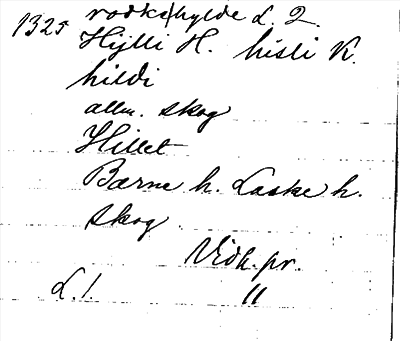 1325 rodkahylde L. 2.
Hylli H. hisli K.
hildi
allm. skog
Hillet
Barne h. Laske h.
skog
Vidk. pr.
L. 1. "